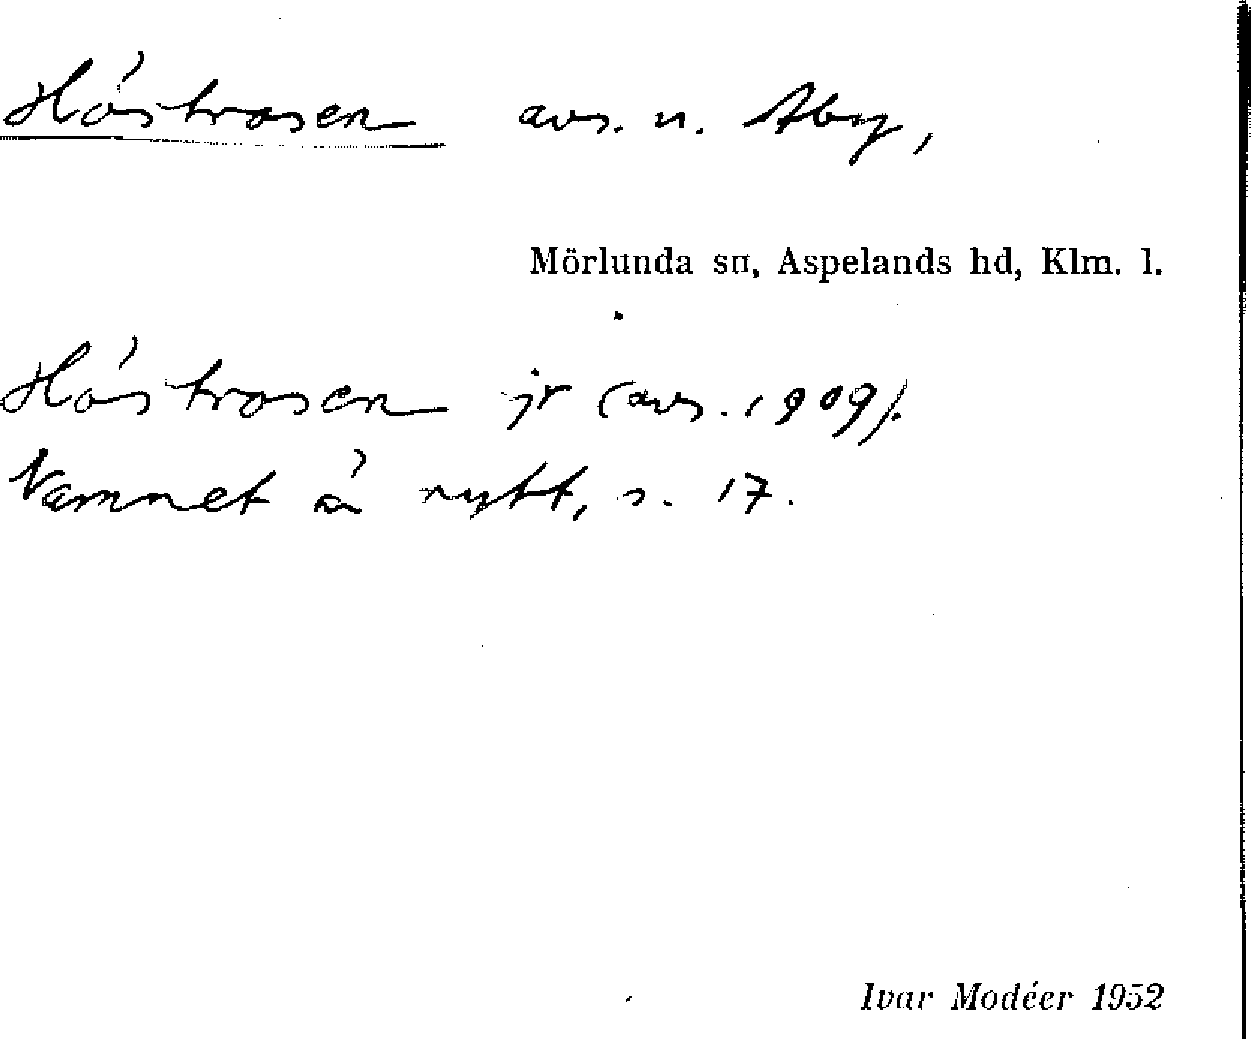 Höstrosen avs. u. Åby,
Mörlunda sn, Aspelands hd, Klm. l.
Höstrosen jr (avs. 1909).
Namnet är nytt, s. 17.
Ivar Modéer 1952